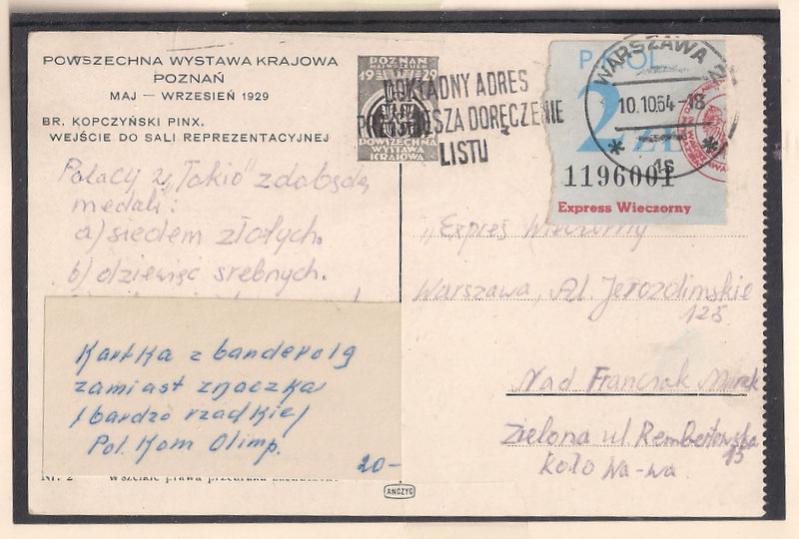 POWSZECHNA WYSTAWA KRAJOWA
POZNAŃ
MAJ — WRZESIEŃ 1929
BR. KOPCZYŃSKI PINX.
WEJŚCIE DO SALI REPREZENTACYJNEJ
POZNAŃ
1929
POWSZECHNA
WYSTAWA
KRAJOWA
DOKŁADNY ADRES
DORĘCZENIE
LISTU
WARSZAWA 2
10.10.64-18
1s
2 ZŁ
1196001
Express Wieczorny
Polacy w "Tokio" zdobędą
medali:
a) siedem złotych.
b) dziewięc srebnych.
Kartka z banderolą
zamiast znaczka
/bardzo rzadkie/
Pol. Kom Olimp.
20-
„Expres Wieczorny
Warszawa, Al. Jerozolimskie
125
Nad Franczak Marek
Zielona ul. Rembertowska
15
koło Wa-wa.
Nr. 2 wszelkie prawa
ANCZYC